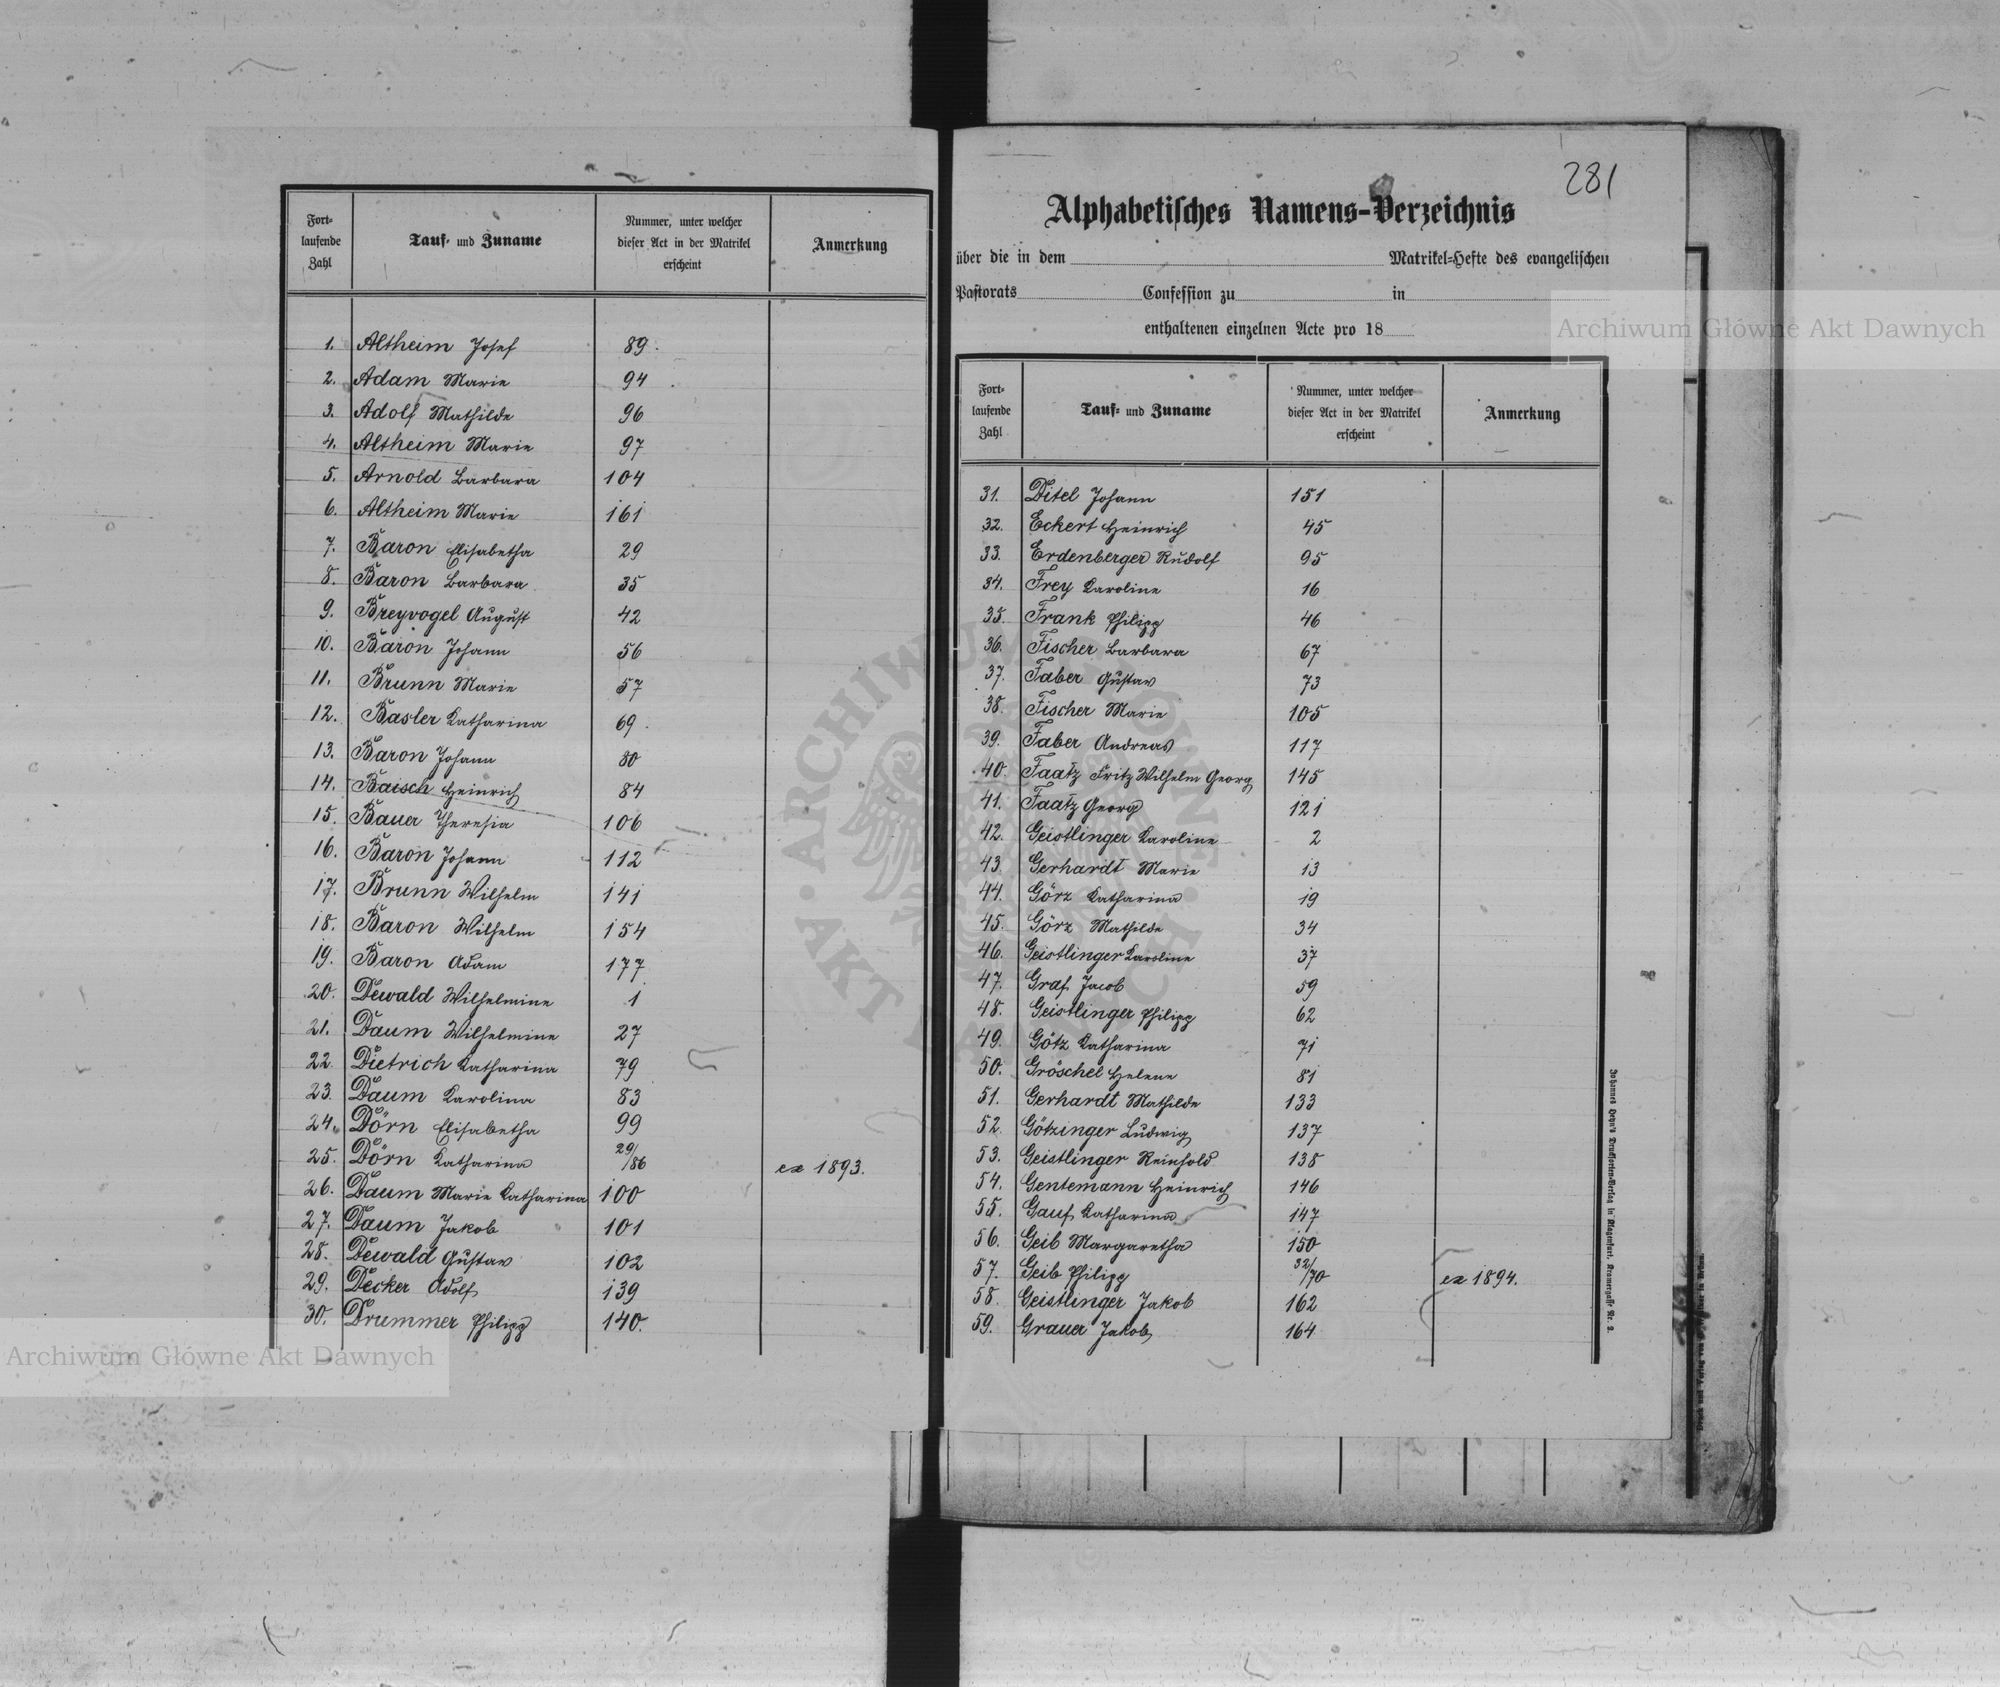 Fort-
laufende
Zahl
Tauf- und Zuname
Nummer, unter welcher
dieser Act in der Matrikel
erscheint
Anmerkung
1. Altheim Josef 89.
2. Adam Marie 94
3. Adolf Mathilde 96
4. Altheim Marie 97
5. Arnold Barbara 104
6. Altheim Marie 161
7. Baron Elisabetha 29
8. Baron Barbara 35
9. Breyvogel August 42
10. Baron Johann 56
11. Brunn Marie 57
12. Basler Katharina 69.
13. Baron Johann 80
14. Baisch Heinrich 84
15. Bauer Theresia 106
16. Baron Johann 112
17. Brunn Wilhelm 141
18. Baron Wilhelm 154
19. Baron Adam 177
20. Dewald Wilhelmine 1
21. Daum Wilhelmine 27
22. Dietrich Katharina 79
23. Daum Karolina 83
24. Dörn Elisabetha 99
25. Dörn Katharina 29/86 ex 1893.
26. Daum Marie Katharina 100
27. Daum Jakob 101
28. Dewald Gustav 102
29. Decker Adolf 139
30. Drummer Philipp 140.
281
Alphabetisches Namens-Verzeichnis
über die in dem Matrikel-Hefte des evangelischen
Pastorats Confession zu in
enthaltenen einzelnen Acte pro 18
Fort-
laufende
Zahl
Tauf- und Zuname
Nummer, unter welcher
dieser Act in der Matrikel
erscheint
Anmerkung
31. Ditel Johann 151
32. Eckert Heinrich 45
33. Erdenberger Rudolf 95
34. Frey Karoline 16
35. Frank Philipp 46
36. Fischer Barbara 67
37. Faber Gustav 73
38. Fischer Marie 105
39. Faber Andreas 117
40. Faatz Fritz Wilhelm Georg 145
41. Faatz Georg 121
42. Geistlinger Karoline 2
43. Gerhardt Marie 13
44. Görz Katharina 19
45. Görz Mathilde 34
46. Geistlinger Karoline 37
47. Graf Jacob 59
48. Geistlinger Philipp 62
49. Götz Katharina 71
50. Gröschel Helene 81
51. Gerhardt Mathilde 133
52. Götzinger Ludwig 137
53. Geistlinger Reinhold 138
54. Gentemann Heinrich 146
55. Gauf Katharina 147
56. Geib Margaretha 150
57. Geib Philipp 32/70 ex 1894.
58. Geistlinger Jakob 162
59. Grauer Jakob 164
Johannes Heyn's Drucksorten-Verlag in Klagenfurt, Kramergasse Nr. 2.
Archiwum Główne Akt Dawnych
Archiwum Główne Akt Dawnych